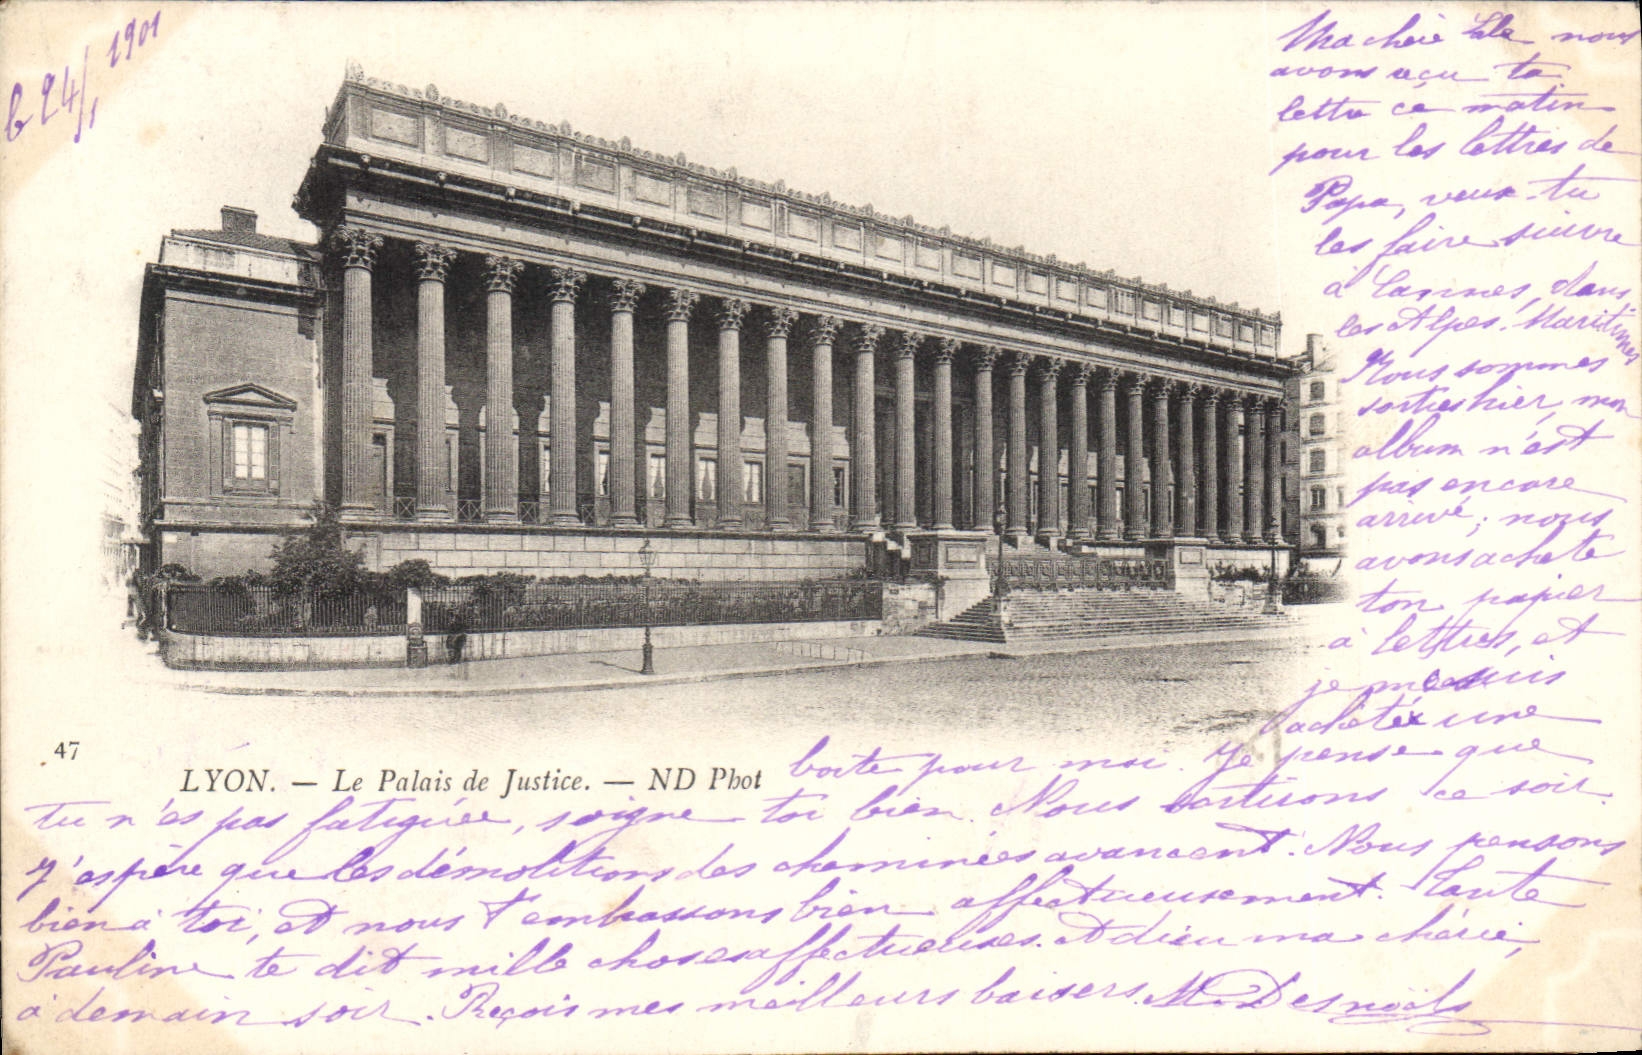 le 24/1 1901
Ma chère Lala nous
avons reçu ta
lettre ce matin
pour les lettres de
Papa, veux-tu
les faire suivre
à Cannes, dans
les Alpes-Maritimes
Nous sommes
sorties hier, mon
album n'est
pas encore
arrivé; nous
avons acheté
ton papier
à lettres, et
je me suis
achetée une
boite pour moi. Je pense que
tu n'es pas fatiguée, soigne toi bien. Nous sortirons ce soir.
J'espère que les démolitions des cheminées avancent. Nous pensons
bien à toi, et nous t'embrassons bien affectueusement. Tante
Pauline te dit mille choses affectueuses. Adieu ma chérie,
à demain soir. Reçois mes meilleurs baisers. M. Desnoëls
47
LYON. — Le Palais de Justice. — ND Phot